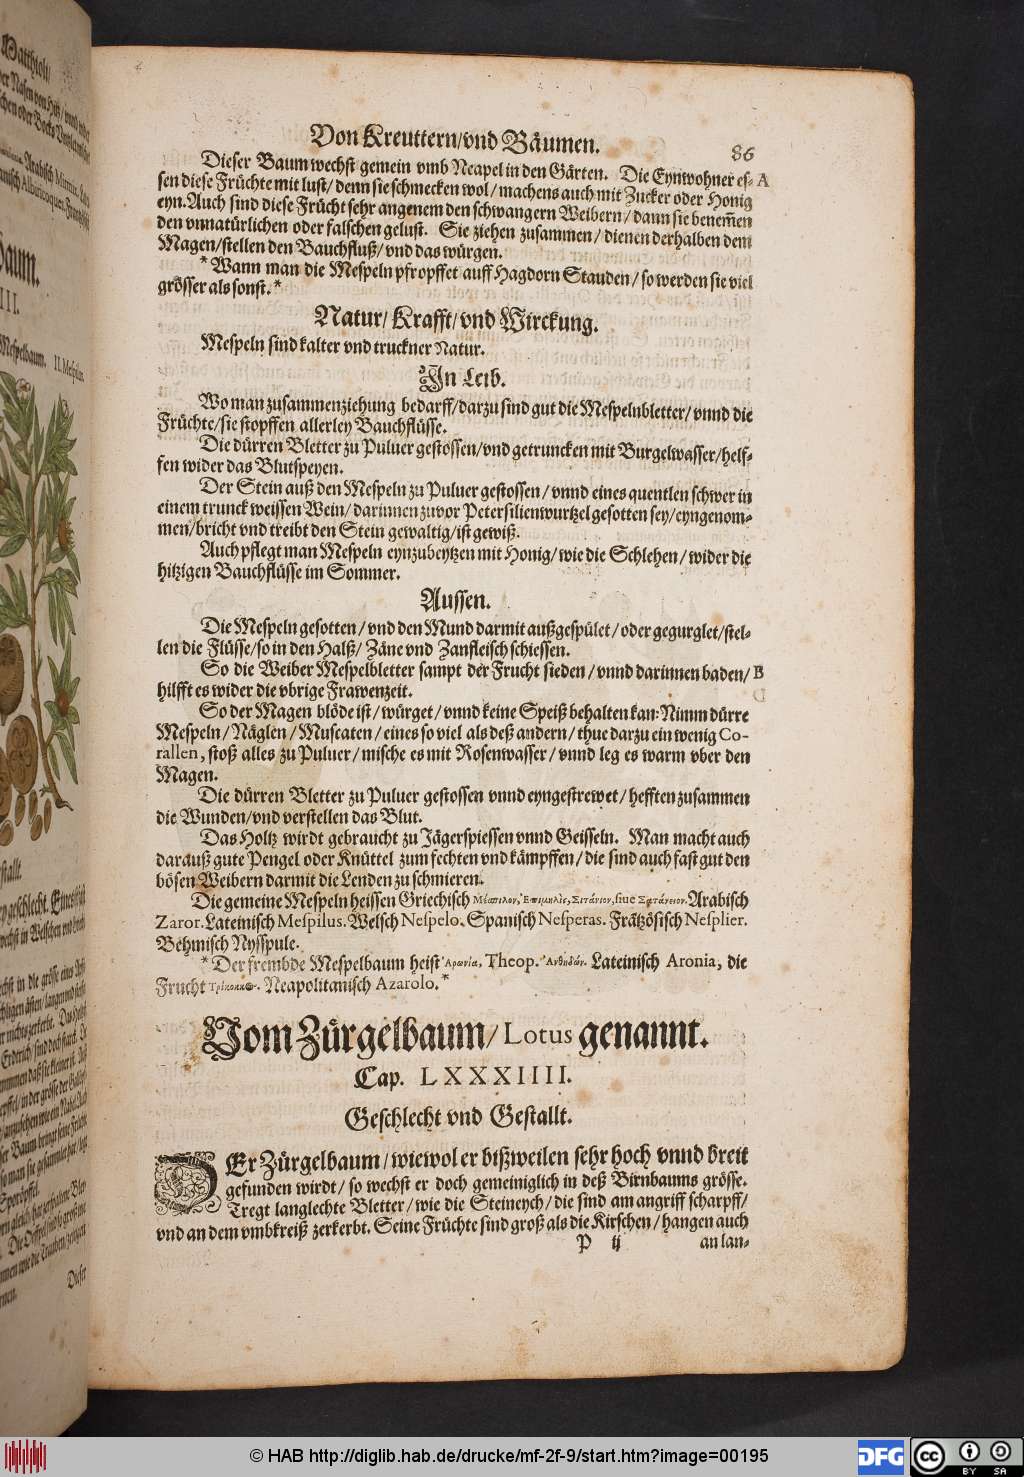 Von Kreuttern/vnd Bäumen.
86
Dieser Baum wechst gemein vmb Neapel in den Gärten. Die Eynwohner es- A
sen diese Früchte mit lust/denn sie schmecken wol/machens auch mit Zucker oder Honig
eyn. Auch sind diese Frücht sehr angenem den schwangern Weibern/dann sie benem̃en
den vnnatürlichen oder falschen gelust. Sie ziehen zusammen/dienen derhalben dem
Magen/stellen den Bauchfluß/vnd das würgen.
* Wann man die Mespeln pfropffet auff Hagdorn Stauden/so werden sie viel
grösser als sonst.*
Natur/Krafft/vnd Wirckung.
Mespeln sind kalter vnd truckner Natur.
In Leib.
Wo man zusammenziehung bedarff/darzu sind gut die Mespelnbletter/vnnd die
Früchte/sie stopffen allerley Bauchflüsse.
Die dürren Bletter zu Puluer gestossen/vnd getruncken mit Burgelwasser/helf-
fen wider das Blutspeyen.
Der Stein auß den Mespeln zu Puluer gestossen/vnnd eines quentlen schwer in
einem trunck weissen Wein/darinnen zuvor Petersilienwurtzel gesotten sey/eyngenom-
men/bricht vnd treibt den Stein gewaltig/ist gewiß.
Auch pflegt man Mespeln eynzubeytzen mit Honig/wie die Schlehen/wider die
hitzigen Bauchflüsse im Sommer.
Aussen.
Die Mespeln gesotten/vnd den Mund darmit außgespület/oder gegurglet/stel-
len die Flüsse/so in den Halß/Zäne vnd Zanfleisch schiessen.
So die Weiber Mespelbletter sampt der Frucht sieden/vnnd darinnen baden/ B
hilfft es wider die vbrige Frawenzeit.
So der Magen blöde ist/würget/vnnd keine Speiß behalten kan: Nimm dürre
Mespeln/Näglen/Muscaten/eines so viel als deß andern/thue darzu ein wenig Co-
rallen, stoß alles zu Puluer/mische es mit Rosenwasser/vnnd leg es warm vber den
Magen.
Die dürren Bletter zu Puluer gestossen vnnd eyngestrewet/hefften zusammen
die Wunden/vnd verstellen das Blut.
Das Holtz wirdt gebraucht zu Jägerspiessen vnnd Geisseln. Man macht auch
darauß gute Pengel oder Knüttel zum fechten vnd kämpffen/die sind auch fast gut den
bösen Weibern darmit die Lenden zu schmieren.
Die gemeine Mespeln heissen Griechisch Μέσπιλον, Ἐπιμηλὶς, Σιτάνιον, siue Σητάνειον. Arabisch
Zaror. Lateinisch Mespilus. Welsch Nespelo. Spanisch Nesperas. Frãtzösisch Nesplier.
Behmisch Nysspule.
* Der frembde Mespelbaum heist Ἀρωνία, Theop. Ἀνθηδών. Lateinisch Aronia, die
Frucht Τρίκοκκ⊕. Neapolitanisch Azarolo.*
Vom Zürgelbaum/Lotus genannt.
Cap. LXXXIIII.
Geschlecht vnd Gestallt.
DEr Zürgelbaum/wiewol er bißweilen sehr hoch vnnd breit
gefunden wirdt/so wechst er doch gemeiniglich in deß Birnbaums grösse.
Tregt langlechte Bletter/wie die Steineych/die sind am angriff scharpff/
vnd an dem vmbkreiß zerkerbt. Seine Früchte sind groß als die Kirschen/hangen auch
P ij
an lan-
© HAB http://diglib.hab.de/drucke/mf-2f-9/start.htm?image=00195
DFG
cc
BY SA